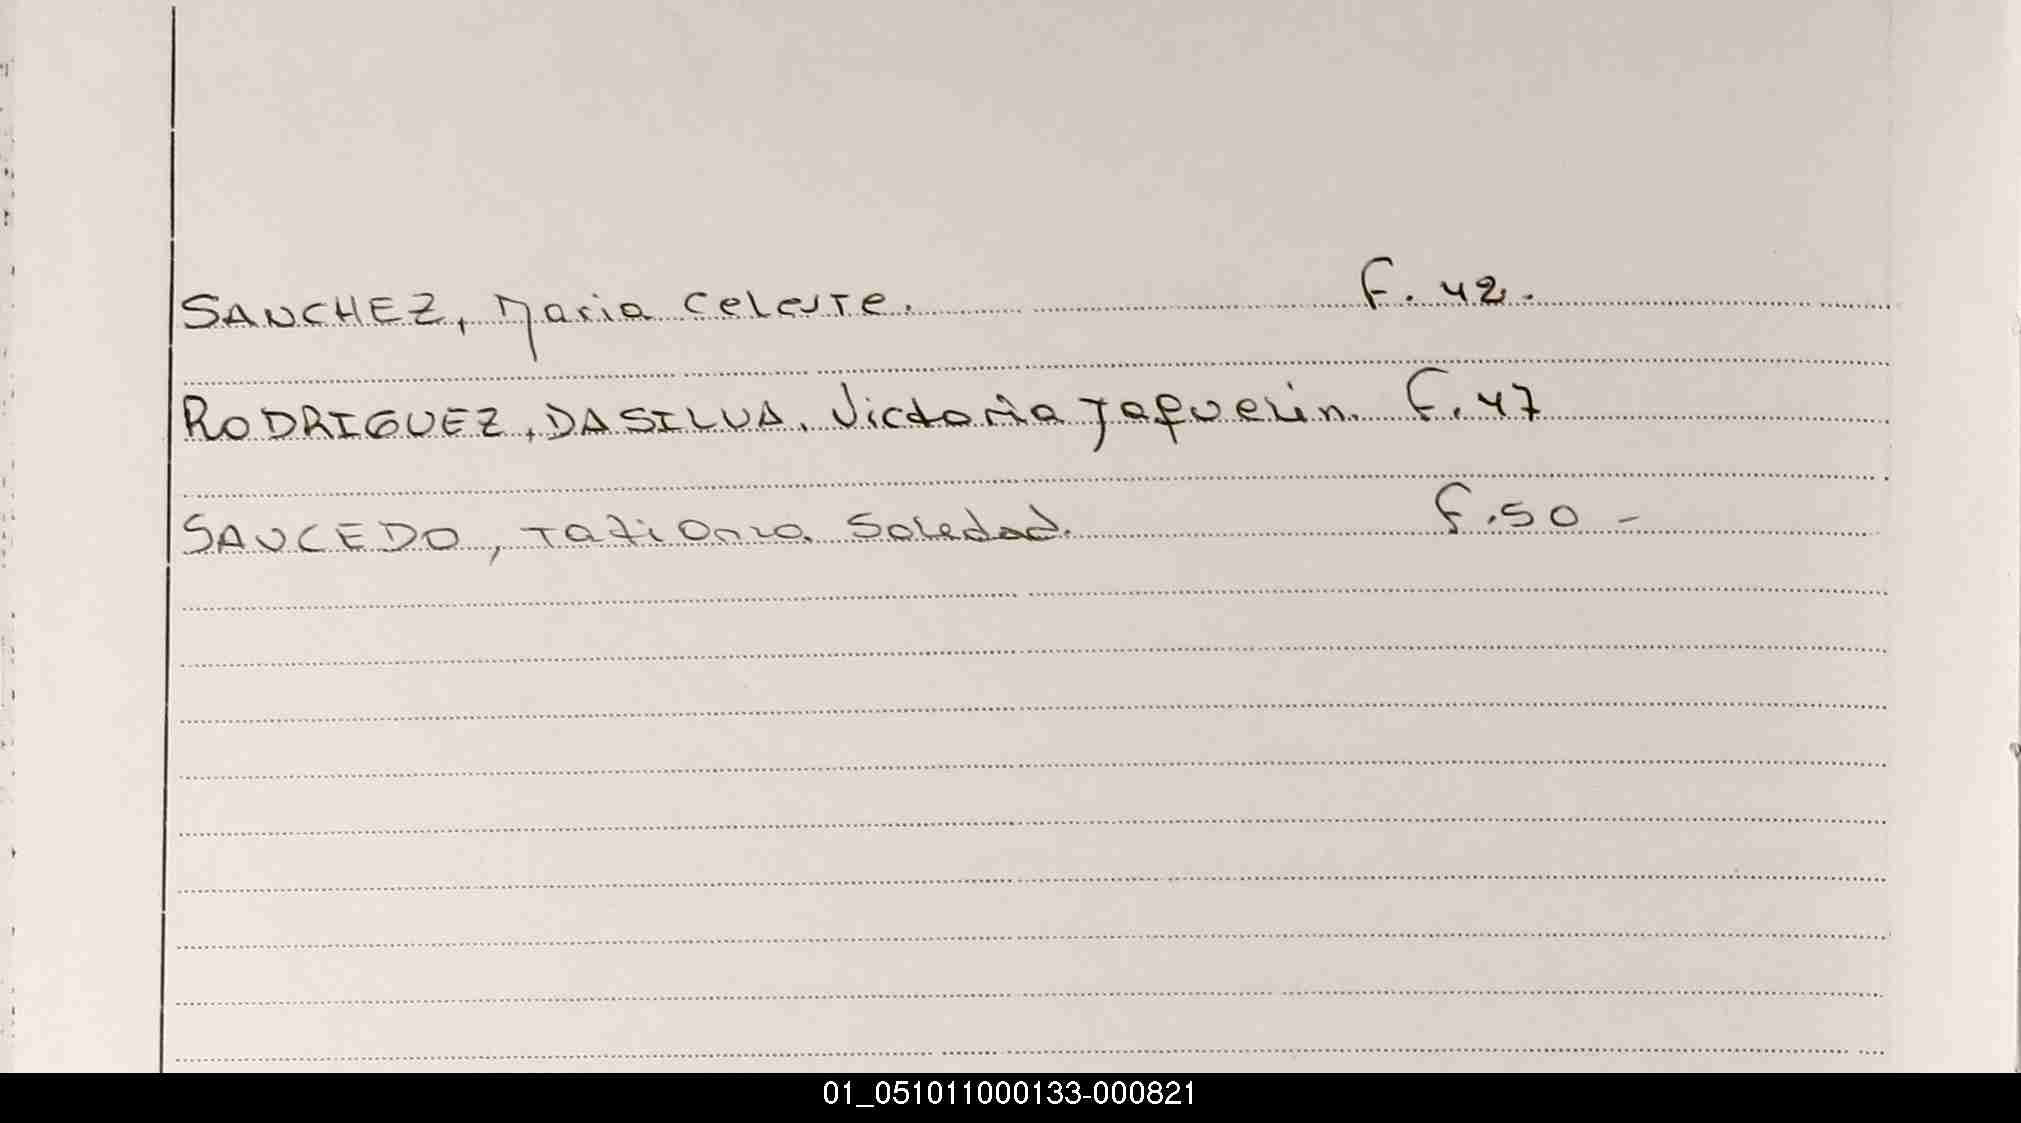 SANCHEZ, Maria Celeste. F. 42.
RODRIGUEZ, DASILVA, Victoria Jaquelin. F. 47
SAUCEDO, Tatiana Soledad. F. 50 -
01_051011000133-000821